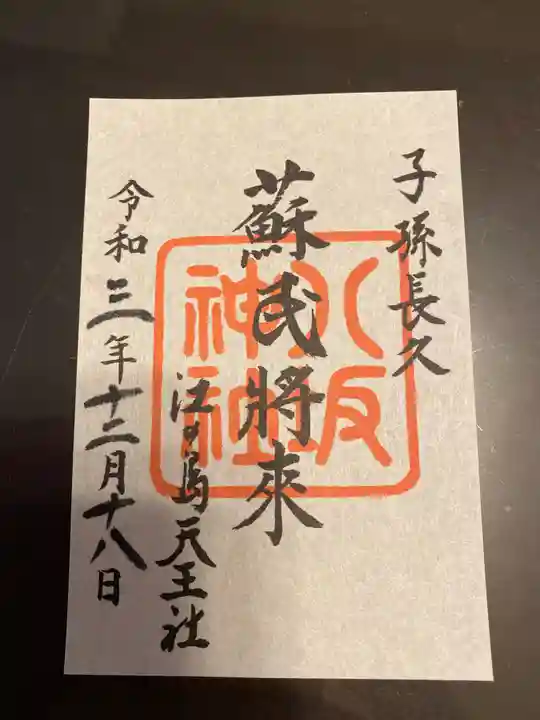 子孫長久
蘇民將來
八坂神社
江の島天王社
令和三年十二月十八日